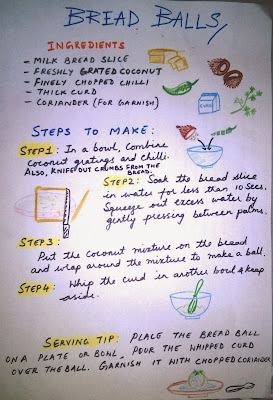 BREAD BALLS
INGREDIENTS
- MILK BREAD SLICE
- FRESHLY GRATED COCONUT
- FINELY CHOPPED CHILLI
- THICK CURD
- CORIANDER (FOR GARNISH)
CURD
STEPS TO MAKE:
STEP1: In a bowl, combine
coconut gratings and chilli.
ALSO, KNIFE OUT CRUMBS FROM THE
BREAD.
STEP2: Soak the bread slice
in water for less than 10 secs.
Squeeze out excess water by
gently pressing between palms.
STEP3:
Put the coconut mixture on the bread
and wrap around the mixture to make a ball.
STEP4: Whip the curd in another bowl & keep
aside.
SERVING TIP: PLACE THE BREAD BALL
ON A PLATE OR BOWL. POUR THE WHIPPED CURD
OVER THE BALL. GARNISH IT WITH CHOPPED CORIANDER